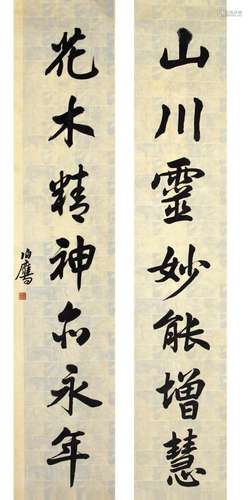 山川靈妙能增慧
花木精神亦永年
伯鷹